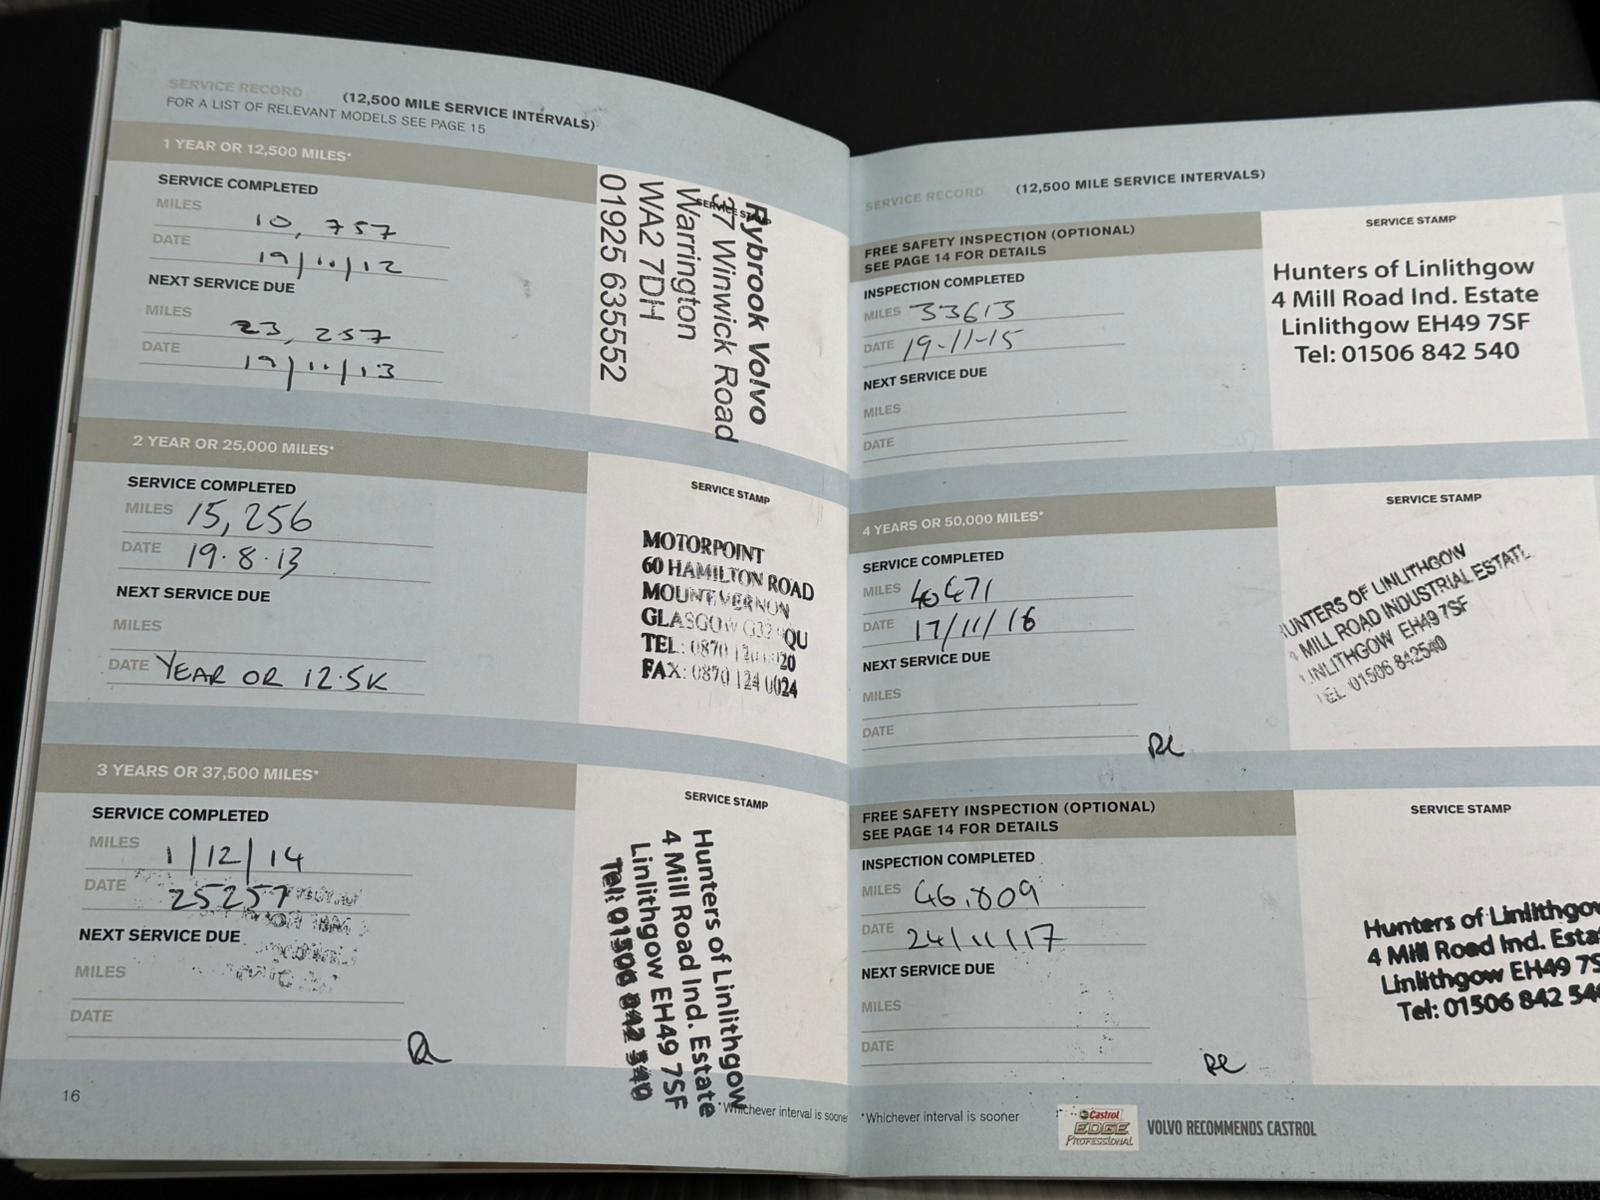 SERVICE RECORD (12,500 MILE SERVICE INTERVALS)
FOR A LIST OF RELEVANT MODELS SEE PAGE 15
1 YEAR OR 12,500 MILES*
SERVICE COMPLETED
MILES 10, 757
DATE 19/11/12
NEXT SERVICE DUE
MILES 23, 257
DATE 19/11/13
SERVICE STAMP
Rybrook Volvo
37 Winwick Road
Warrington
WA2 7DH
01925 635552
2 YEAR OR 25,000 MILES*
SERVICE COMPLETED
MILES 15,256
DATE 19.8.13
NEXT SERVICE DUE
MILES
DATE YEAR OR 12.5K
SERVICE STAMP
MOTORPOINT
60 HAMILTON ROAD
MOUNT VERNON
GLASGOW QU
TEL: 0870
FAX: 0870 124 0024
3 YEARS OR 37,500 MILES*
SERVICE COMPLETED
MILES 1/12/14
DATE 25257
NEXT SERVICE DUE
MILES
DATE
SERVICE STAMP
Hunters of Linlithgow
4 Mill Road Ind. Estate
Linlithgow EH49 7SF
Tel: 01506 842 540
16
*Whichever interval is sooner
SERVICE RECORD (12,500 MILE SERVICE INTERVALS)
FREE SAFETY INSPECTION (OPTIONAL)
SEE PAGE 14 FOR DETAILS
INSPECTION COMPLETED
MILES 33613
DATE 19-11-15
NEXT SERVICE DUE
MILES
DATE
SERVICE STAMP
Hunters of Linlithgow
4 Mill Road Ind. Estate
Linlithgow EH49 7SF
Tel: 01506 842 540
4 YEARS OR 50,000 MILES*
SERVICE COMPLETED
MILES 40671
DATE 17/11/16
NEXT SERVICE DUE
MILES
DATE
SERVICE STAMP
HUNTERS OF LINLITHGOW
4 MILL ROAD INDUSTRIAL ESTATE
LINLITHGOW EH49 7SF
TEL 01506 842540
FREE SAFETY INSPECTION (OPTIONAL)
SEE PAGE 14 FOR DETAILS
INSPECTION COMPLETED
MILES 46,809
DATE 24/11/17
NEXT SERVICE DUE
MILES
DATE
SERVICE STAMP
Hunters of Linlithgow
4 Mill Road Ind. Esta
Linlithgow EH49 7S
Tel: 01506 842 54
*Whichever interval is sooner
Castrol
EDGE
PROFESSIONAL
VOLVO RECOMMENDS CASTROL